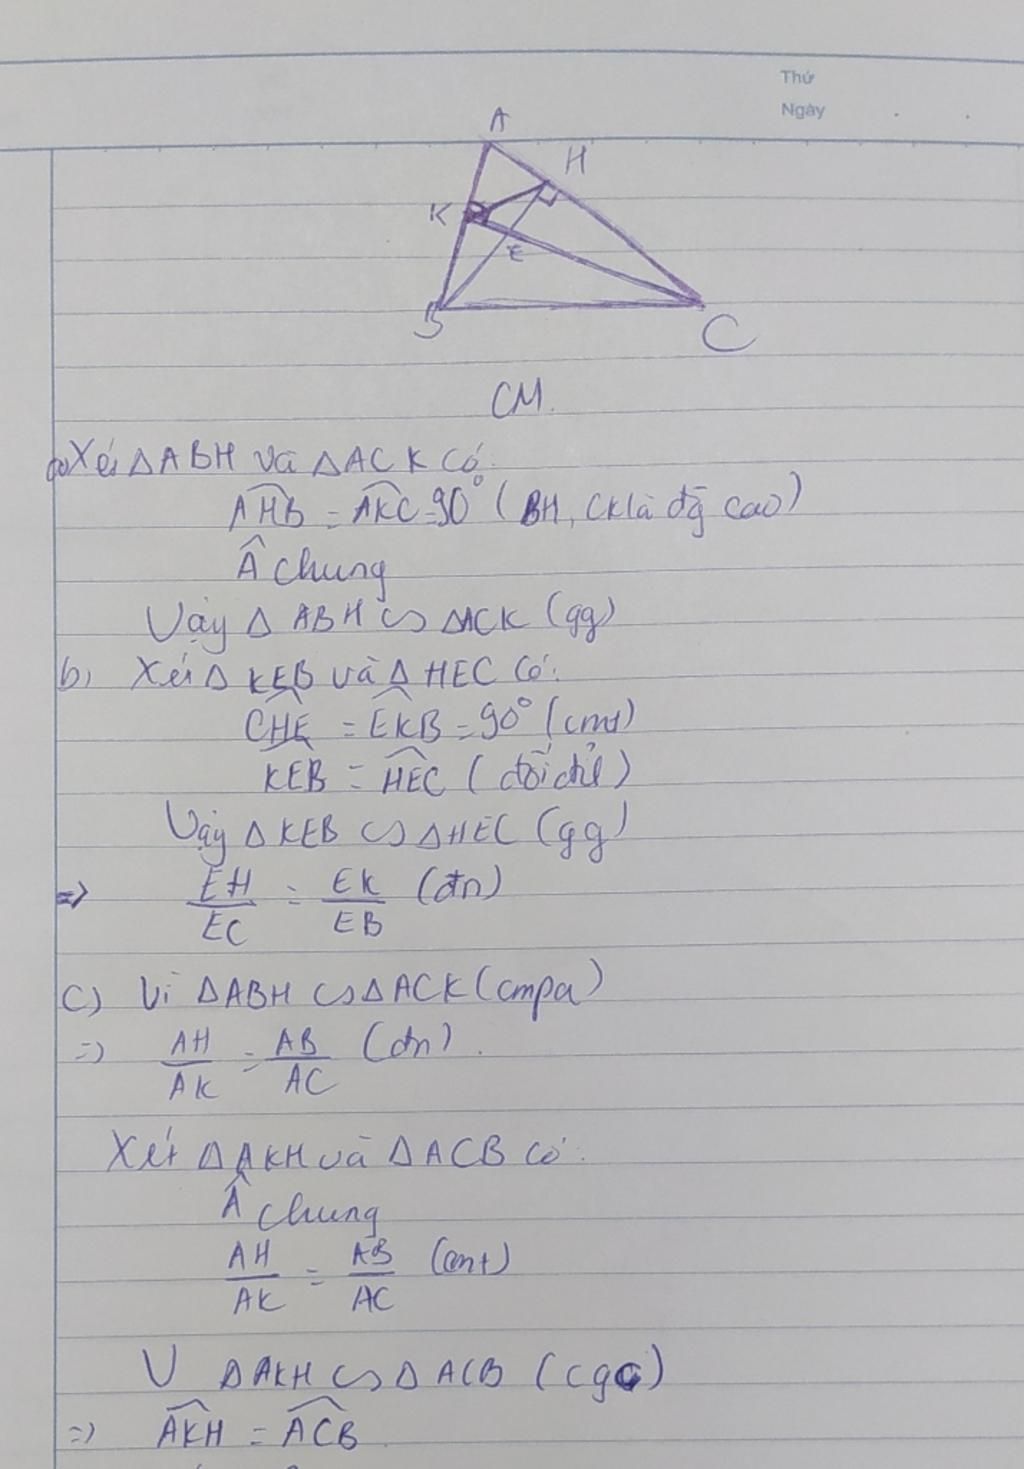 Thứ
Ngày
A
H
K
E
B
C
CM.
a) Xét ΔABH và ΔACK có:
AHB = AKC = 90° (BH, CK là đg cao)
Â chung
Vậy Δ ABH ∽ ΔACK (gg)
b) Xét Δ KEB và Δ HEC có:
CHE = EKB = 90° (cmt)
KEB = HEC (đối đỉ)
Vậy Δ KEB ∽ Δ HEC (gg)
=> EH/EC = EK/EB (đn)
c) Vì ΔABH ∽ ΔACK (cmpa)
=> AH/AK = AB/AC (đn).
Xét ΔAKH và ΔACB có:
Â chung
AH/AK = AB/AC (cmt)
V ΔAKH ∽ ΔACB (cgc)
=> AKH = ACB